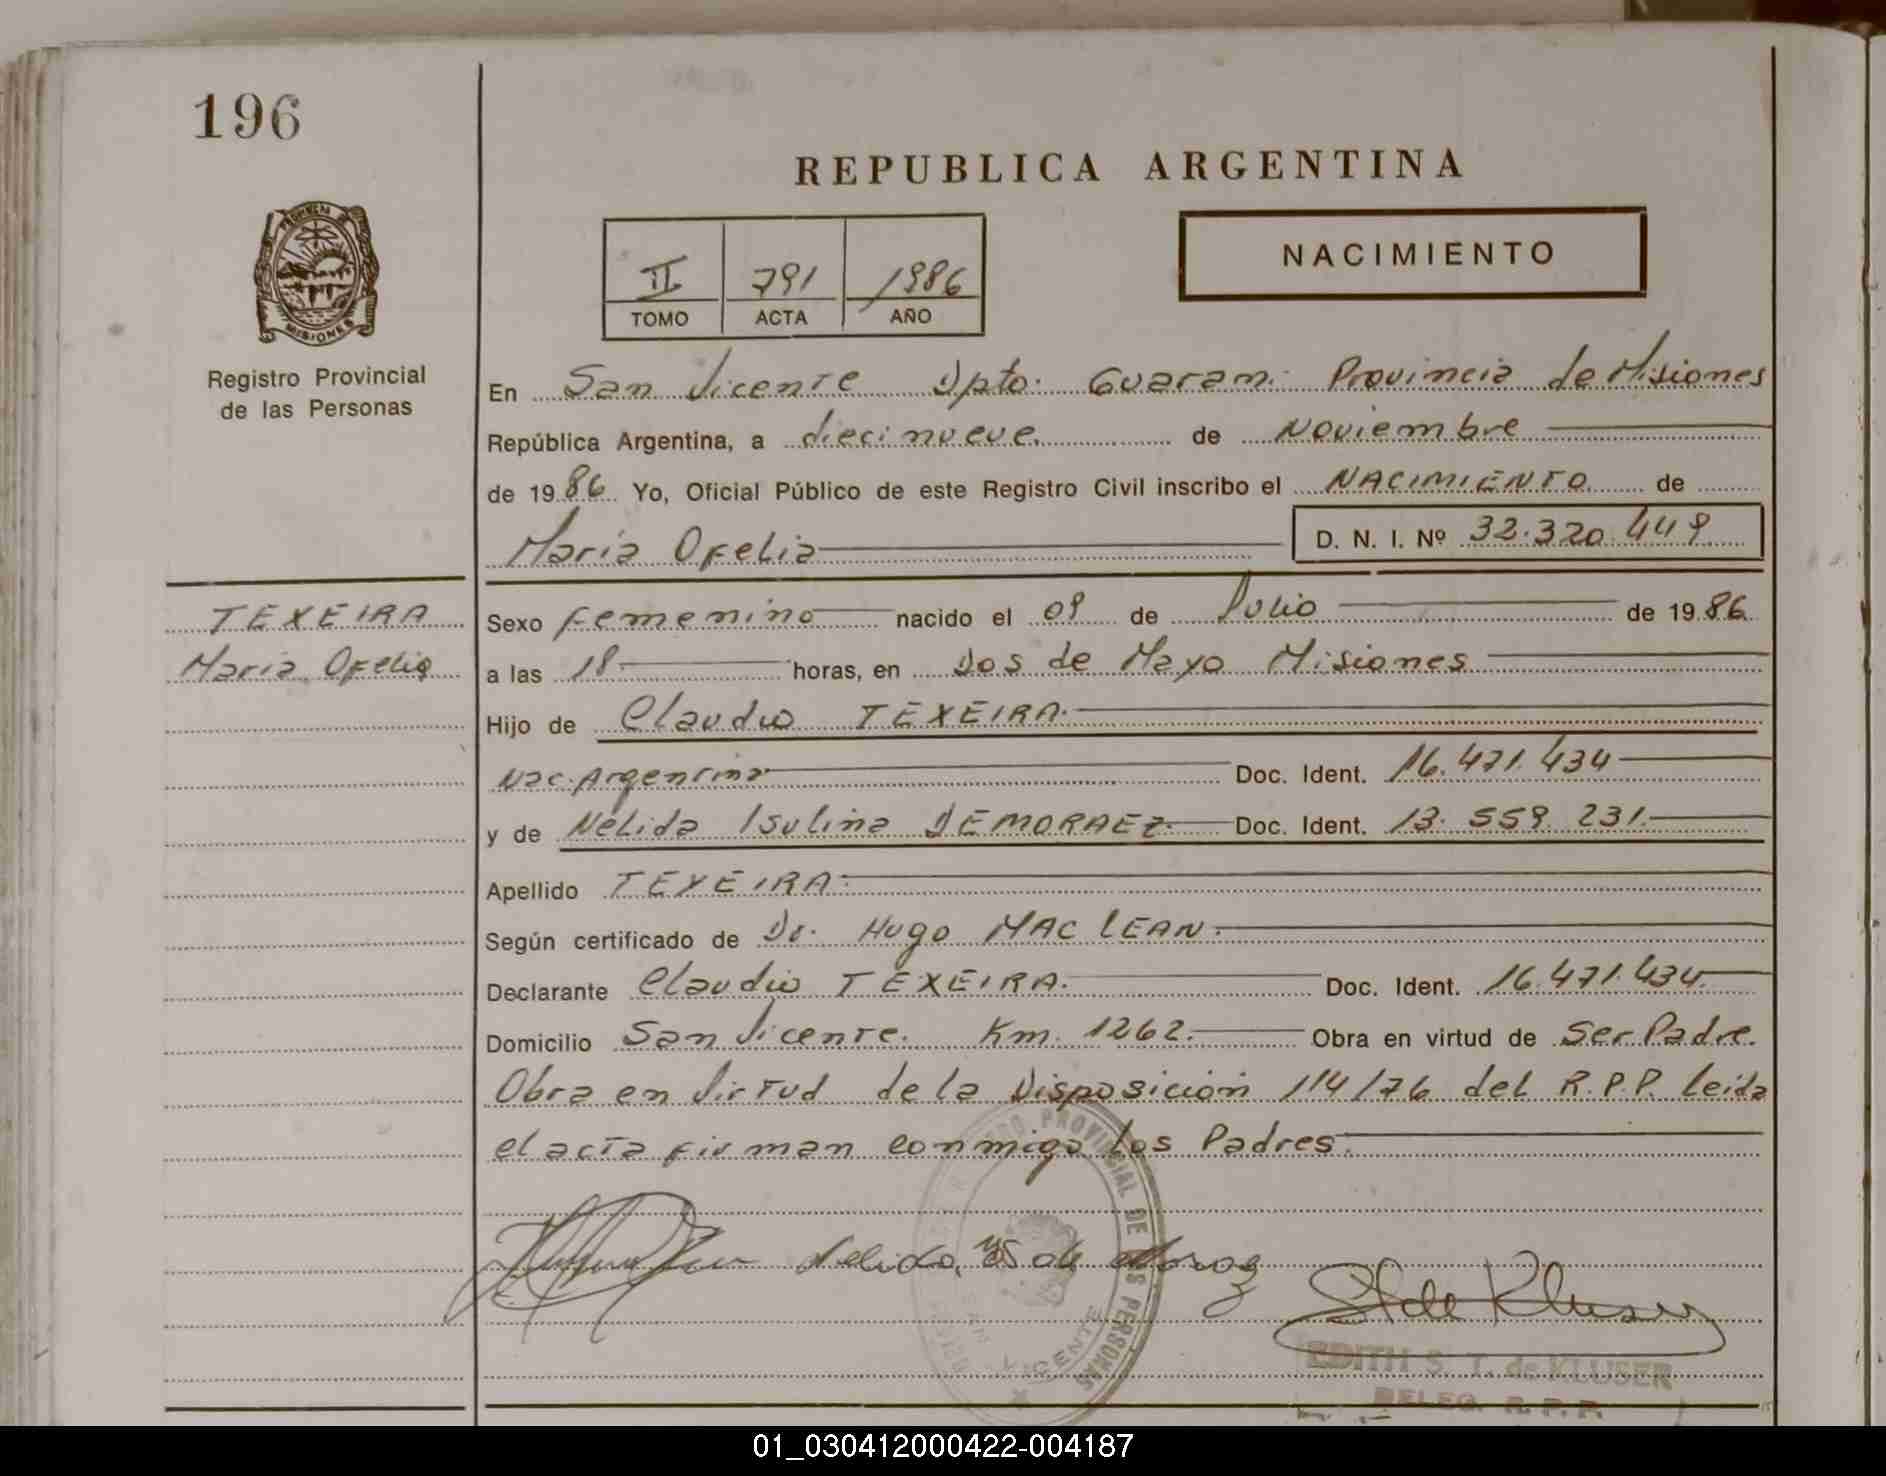 196
REPUBLICA ARGENTINA
PROVINCIA DE
MISIONES
Registro Provincial
de las Personas
II 791 1986
TOMO ACTA AÑO
NACIMIENTO
En San Vicente Dpto. Guarani Provincia de Misiones
República Argentina, a diecinueve de Noviembre
de 1986 Yo, Oficial Público de este Registro Civil inscribo el NACIMIENTO de
Maria Ofelia D. N. I. Nº 32.320.449
TEXEIRA
Maria Ofelia
Sexo femenino nacido el 09 de Julio de 1986
a las 18 horas, en Dos de Mayo Misiones
Hijo de Claudio TEXEIRA.
Nac. Argentina Doc. Ident. 16.471.434
y de Nelida Isulina DEMORAEZ. Doc. Ident. 13.559.231.
Apellido TEXEIRA.
Según certificado de Dr. Hugo MAC LEAN.
Declarante Claudio TEXEIRA. Doc. Ident. 16.471.434.
Domicilio San Vicente. Km. 1262. Obra en virtud de Ser Padre.
Obra en Virtud de la Disposición 114/76 del R.P.P. Leida
el acta firman conmigo Los Padres.
Nelida de Moraez
E T de Kluser
REGISTRO PROVINCIAL DE LAS PERSONAS
SAN VICENTE
EDITH S. T. de KLUSER
DELEG. R. P. P.
01_030412000422-004187